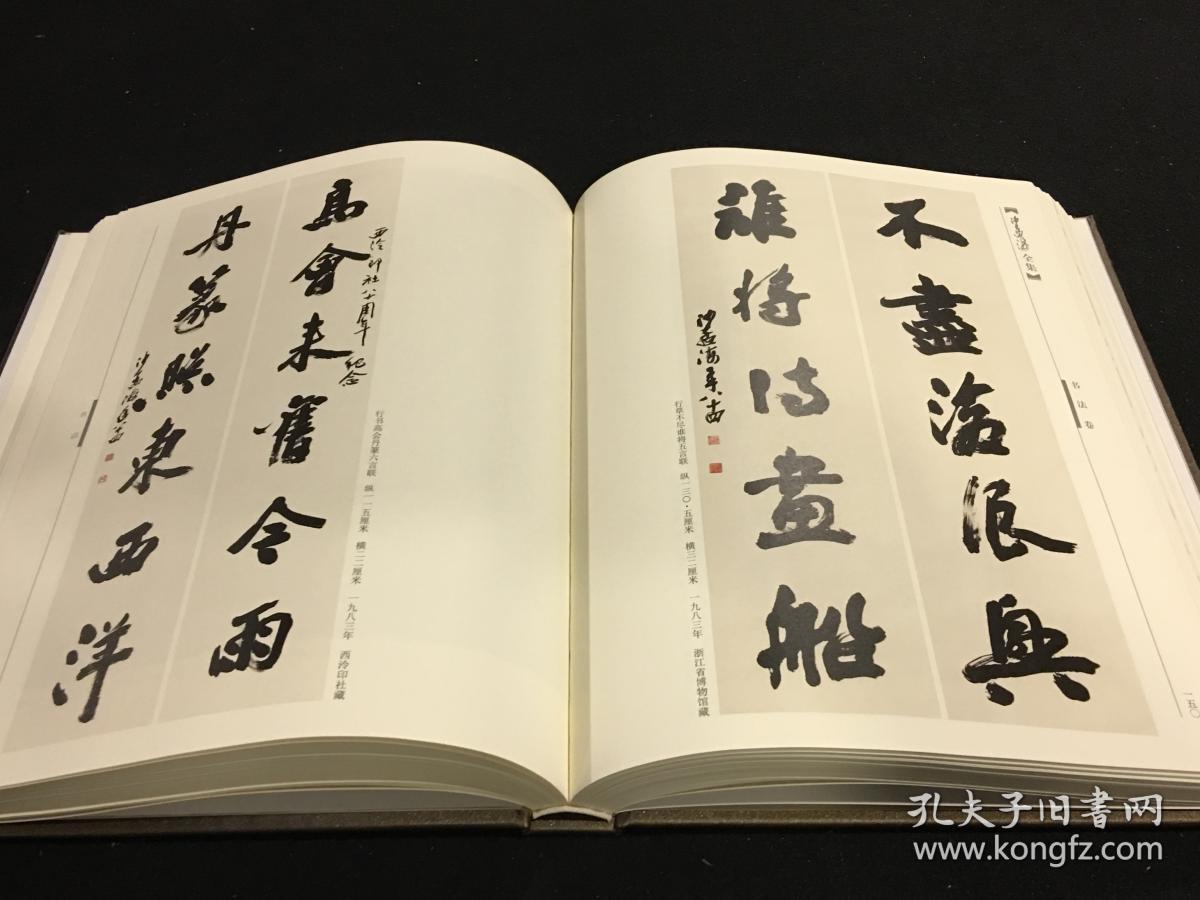 【沙孟海全集】
书法卷
一五〇
不盡滄浪興
誰將詩畫船
沙孟海年八十四
行草不尽谁将五言联 纵一三〇·五厘米 横三二厘米 一九八三年 浙江省博物馆藏
高會來舊今雨
西泠印社八十周年纪念
丹篆東西洋
沙孟海
行书高会丹篆六言联 纵一一五厘米 横二二厘米 一九八三年 西泠印社藏
孔夫子旧书网
www.kongfz.com